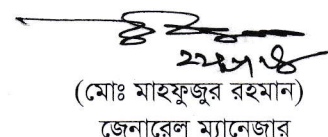 (মোঃ মাহফুজুর রহমান)
জেনারেল ম্যানেজার